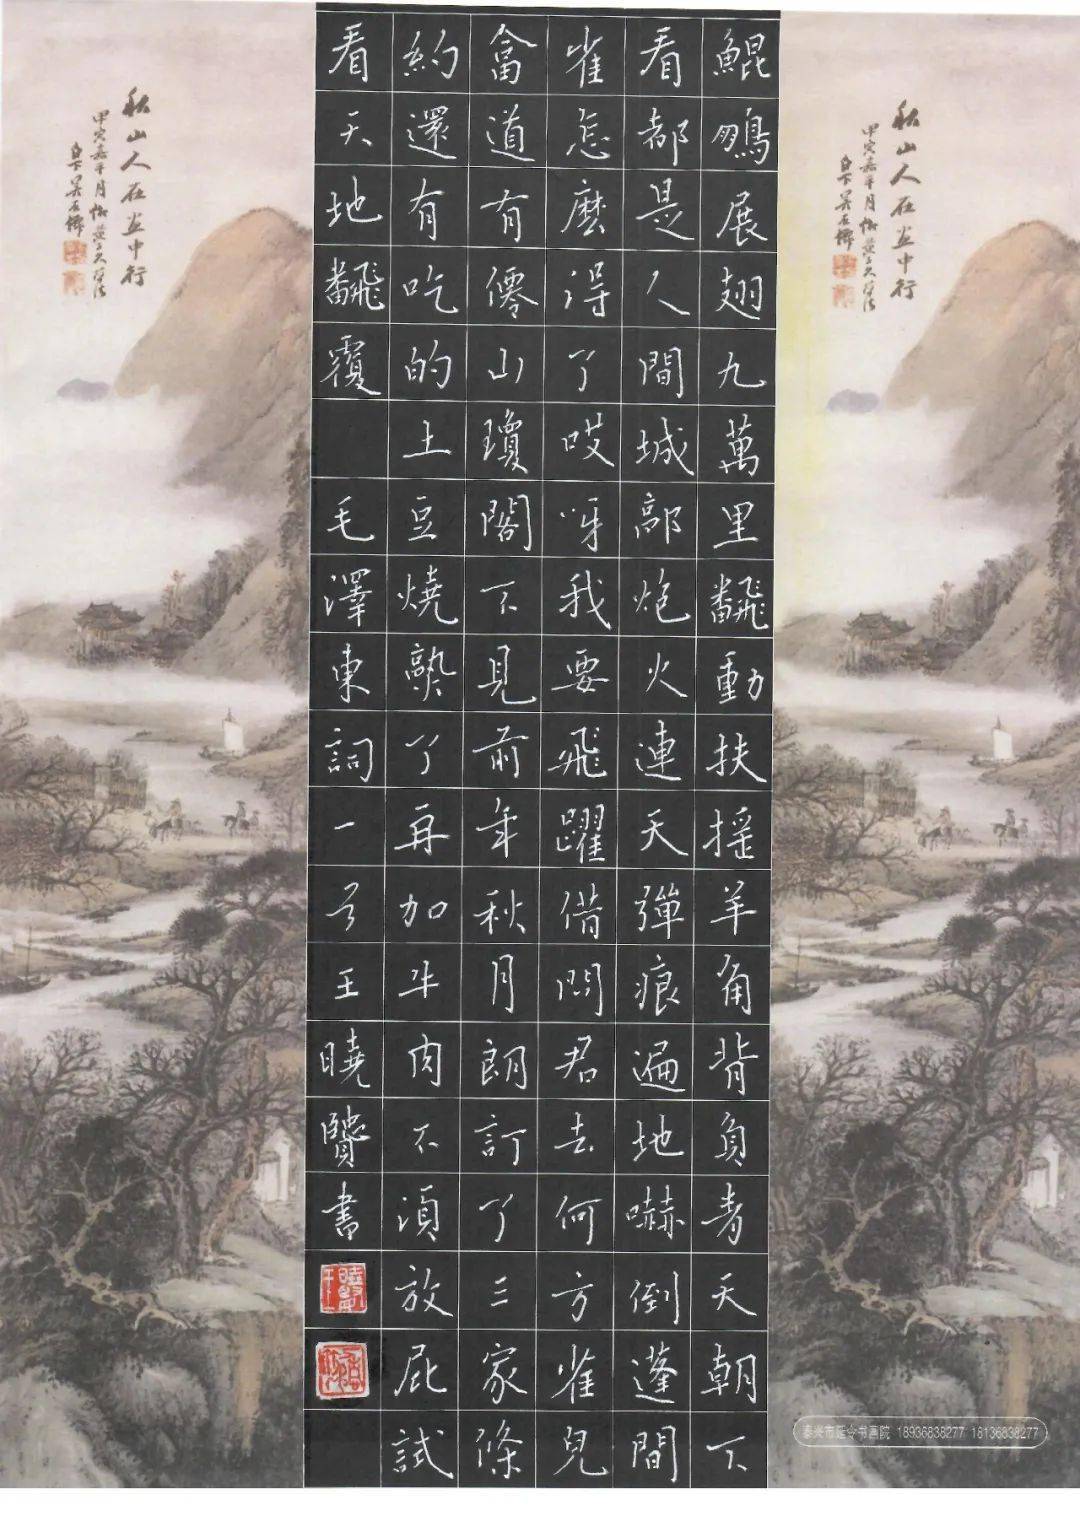 秋山人在畫中行
甲寅嘉平月
鯤鵬展翅九萬里飜動扶搖羊角背負青天朝下
看都是人間城郭炮火連天彈痕遍地嚇倒蓬間
雀怎麼得了哎呀我要飛躍借問君去何方雀兒
畣道有僊山瓊閣不見前年秋月朗訂了三家條
約還有吃的土豆燒熟了再加牛肉不須放屁試
看天地飜覆 毛澤東詞一首王曉贇書
秋山人在畫中行
甲寅嘉平月
泰兴市延令书画院 18936838277 18136838277